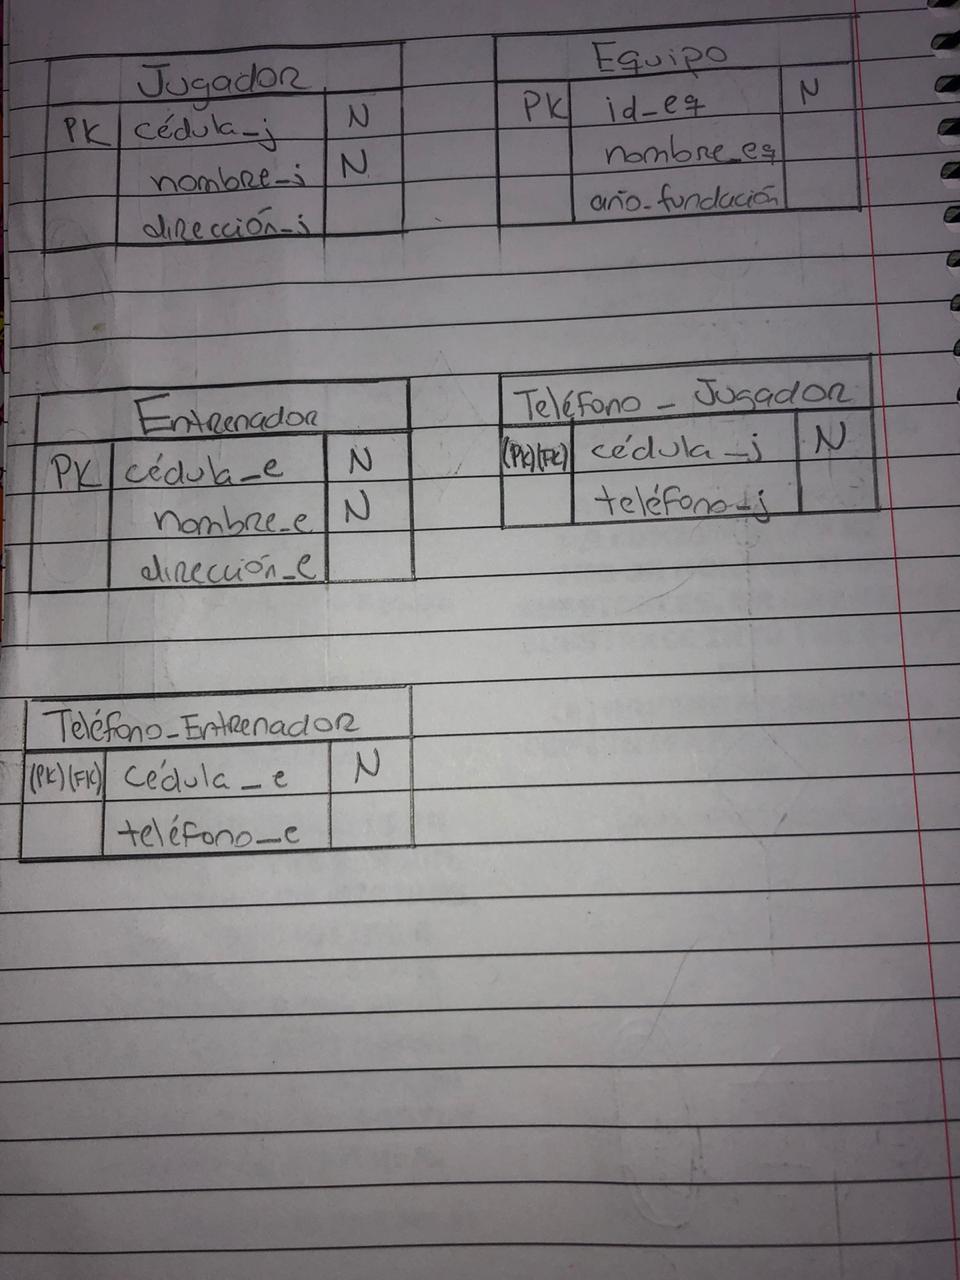 Jugador
PK cédula_j N
nombre_j N
dirección_j
Equipo
PK id_eq N
nombre_eq
año_fundación
Entrenador
PK cédula_e N
nombre_e N
dirección_e
Teléfono_Jugador
(PK)(FK) cédula_j N
teléfono_j
Teléfono_Entrenador
(PK)(FK) cédula_e N
teléfono_e